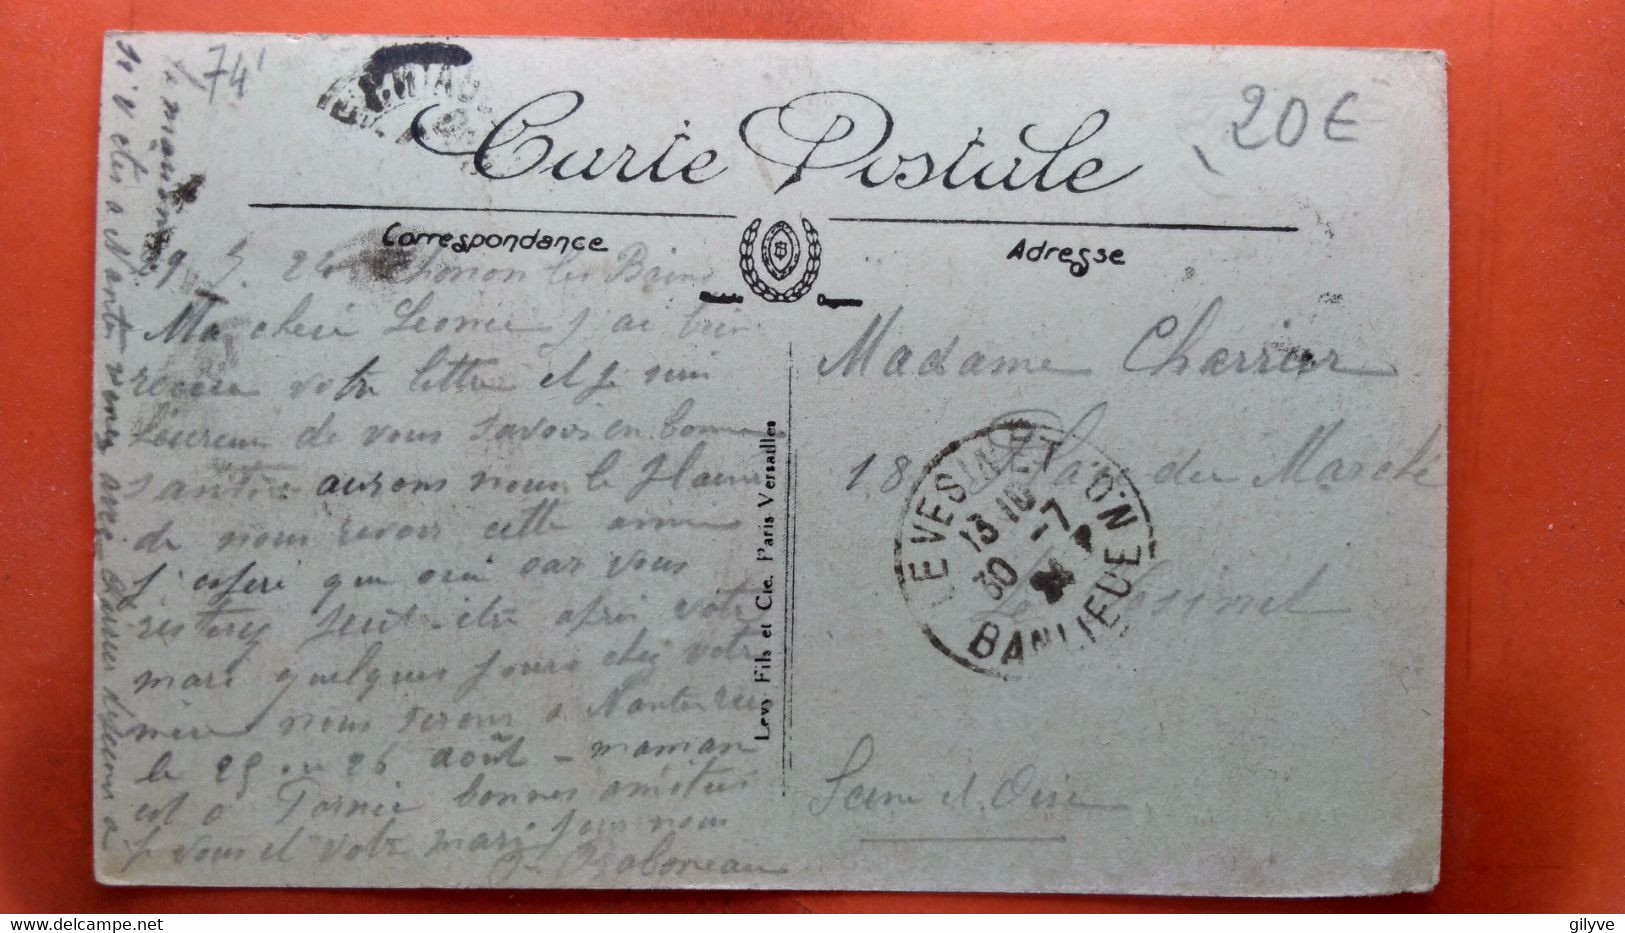 74
20€
Carte Postale
Correspondance
Adresse
29 7. 24 Thonon les Bains
Ma cherie Leonie j'ai bien
recue votre lettre et je suis
heureuse de vous savoir en bonne
santée aurons nous le plaisir
de nous revoir cette année
j'espere que oui car vous
resterez peut-etre apres votre
mari quelques jours chez votre
mère nous serons a Nanterre
le 25 ou 26 août - maman
est a bonnes amitiés
a vous et votre mari pour nous
si v etes a venez avec
la maison
Levy Fils et Cie. Paris Versailles
Madame Charrier
18 Place du Marché
Le Vesinet
Seine et Oise
LE VESINET
BANLIEUE
13 10
30 -7
gilyve